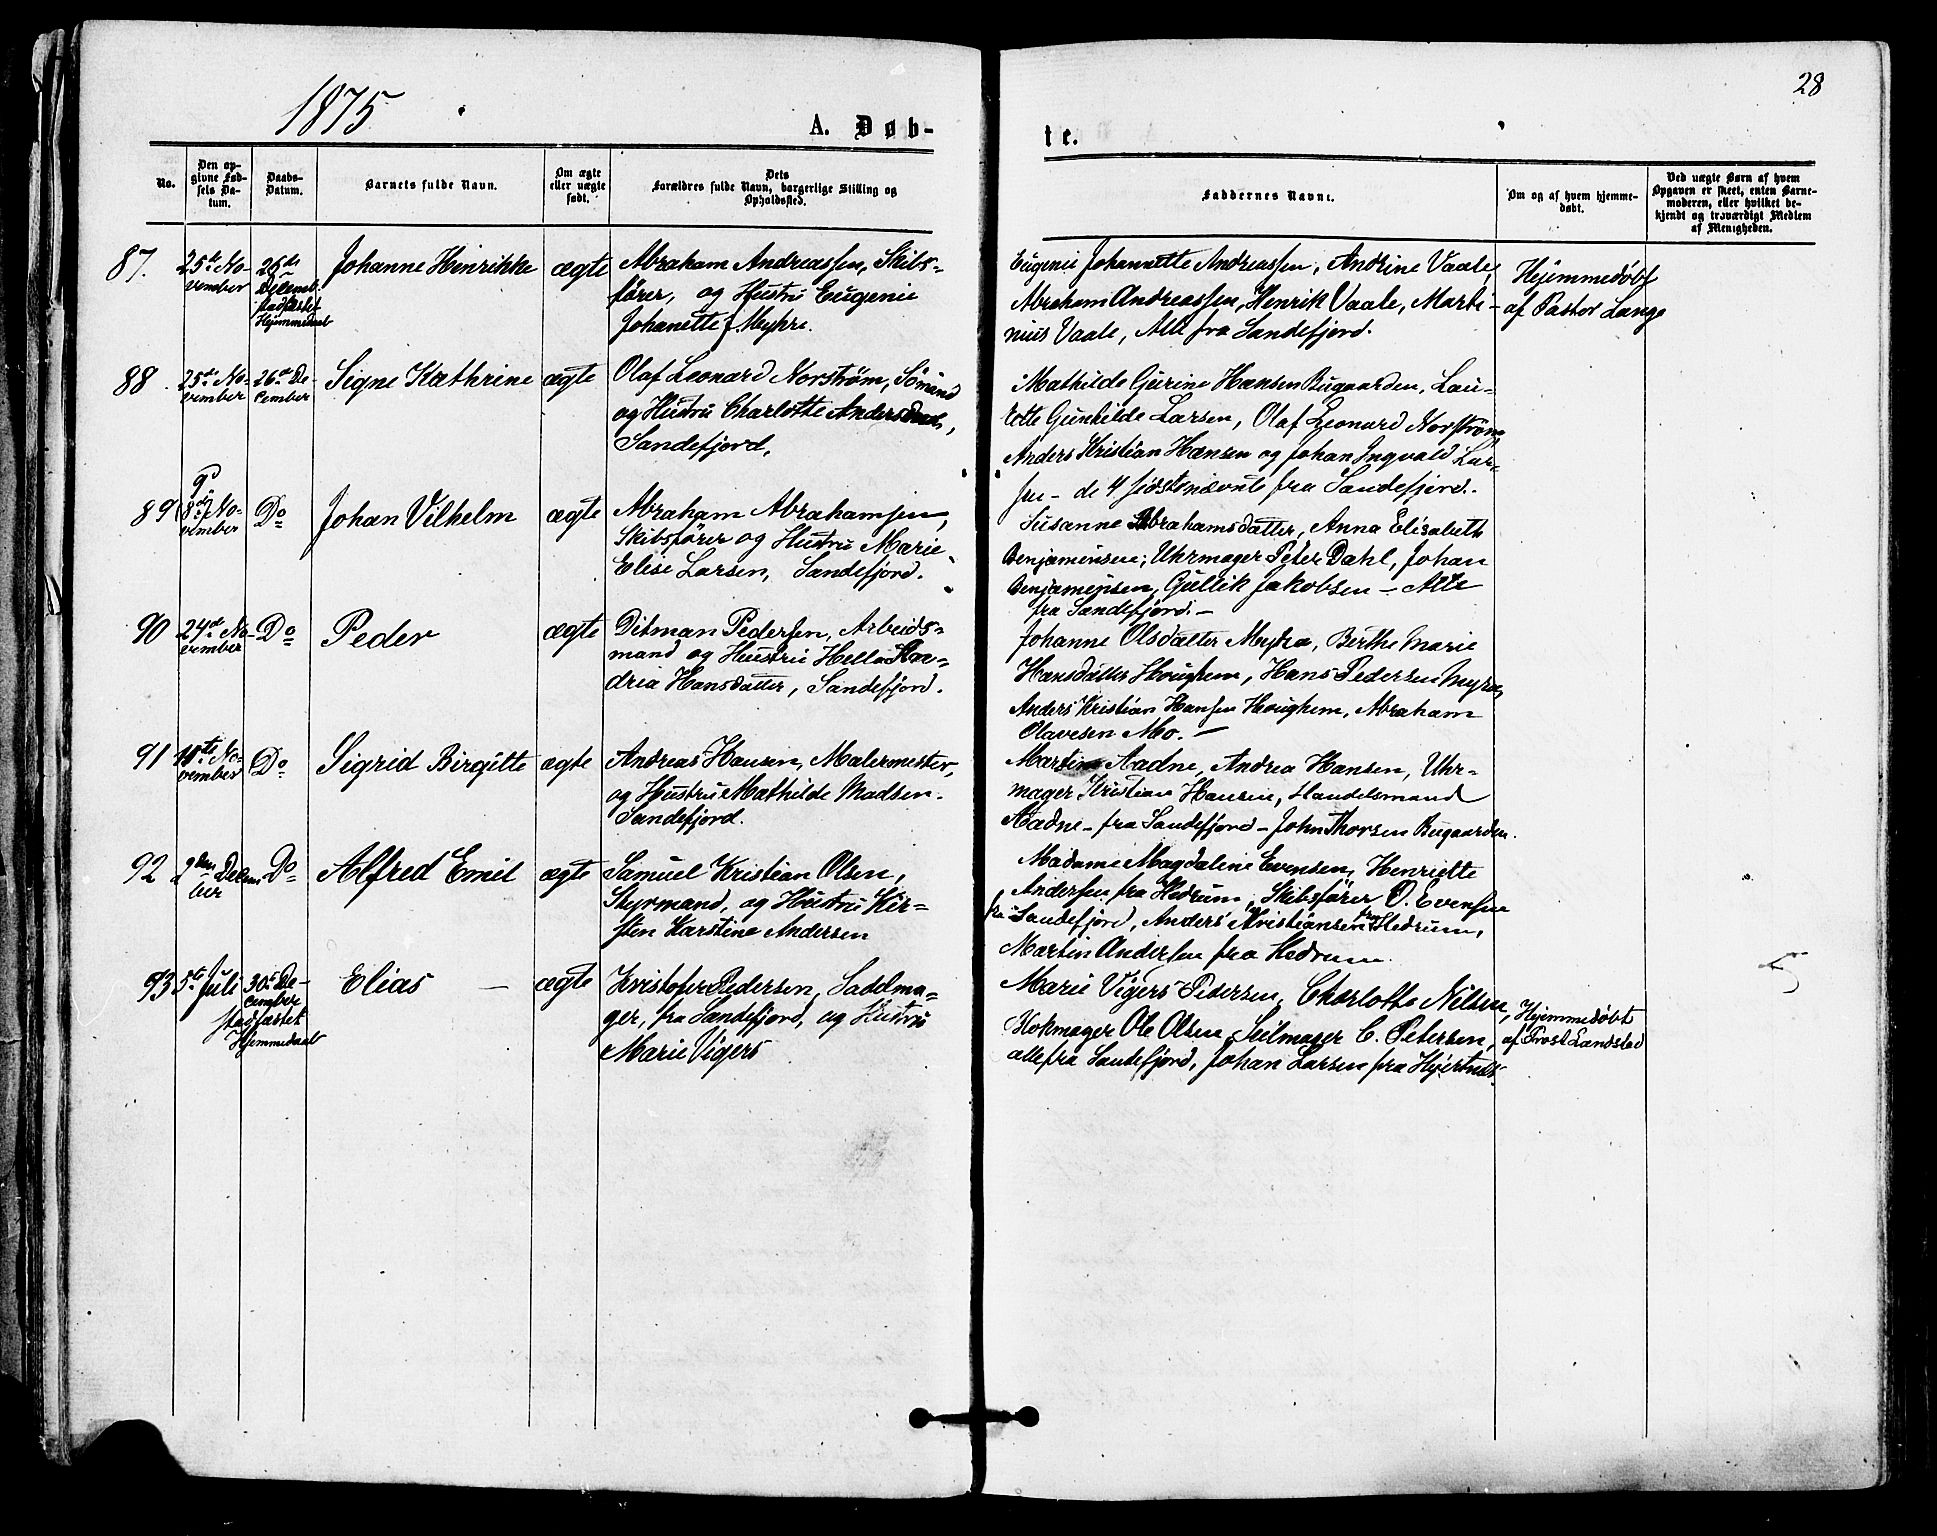 1875
28
A. Døb-
te.
No.
Den op-
givne Fød-
sels Da-
tum.
Daabs-
Datum.
Barnets fulde Navn.
Om ægte
eller uægte
født.
Dets
Forældres fulde Navn, borgerlige Stilling og
Opholdssted.
Faddernes Navne.
Om og af hvem hjemme-
døbt.
Ved uægte Børn af hvem
Opgaven er skeet, enten Barne-
moderen, eller hvilket be-
kjendt og troværdigt Medlem
af Menigheden.
87.
25de No-
vember
26de
Decemb.
stadfæstet
Hjemmedaab
Johanne Henrikke
ægte
Abraham Andreassen, Skibs-
fører, og Hustru Eugenie
Johanette Myhre.
Eugenie Johannette Andreassen, Andrine Vaale,
Abraham Andreassen, Henrik Vaale, Marti-
nius Vaale, Alle fra Sandefjord.
Hjemmedøbt
af Pastor Lange
88.
25de No-
vember
26de De-
cember
Signe Kathrine
ægte
Olaf Leonard Norstrøm, Sömand
og Hustru Charlotte Andersdatt,
Sandefjord.
Mathilde Gurine Hansen Bugaarden, Lau-
rette Gunhilde Larsen, Olaf Leonard Norstrøm,
Anders Kristian Hansen og Johan Ingvald Lar-
sen - de 4 sidstnævnte fra Sandefjord.
89
8de No-
vember
Do
Johan Vilhelm
ægte
Abraham Abrahamsen,
Skibsfører og Hustru Marie
Elise Larsen, Sandefjord.
Susanne Abrahamsdatter, Anna Elisabeth
Benjaminsen; Uhrmager Peter Dahl, Johan
Benjaminsen, Gullik Jakobsen - Alle
fra Sandefjord. -
90
24de No-
vember
Do
Peder
ægte
Ditman Pedersen, Arbeids-
mand og Hustru Hella An-
dria Hansdatter, Sandefjord.
Johanne Olsdatter Myhra, Berthe Marie
Hansdatter Houghem, Hans Pedersen Myra,
Anders Kristian Hansen Houghem, Abraham
Olavesen Mo. -
91
18te No-
vember
Do
Sigrid Birgitte
ægte
Andreas Hansen, Malermester,
og Hustru Mathilde Madsen.
Sandefjord.
Martine Aadne, Andrea Hansen, Uhr-
mager Kristian Hansen, Handelsmand
Aadne - fra Sandefjord - John Thorsen Bugaarden.
92
2den Decem
ber
Do
Alfred Emil
ægte
Samuel Kristian Olsen,
Styrmand, og Hustru Kir-
sten Karstine Andersen
Madame Magdaline Evensen, Henriette
Andersen fra Hedrum, Skibsfører O. Evensen
fra Sandefjord, Anders Kristiansen fra Hedrum,
Martin Andersen fra Hedrum.
93
5te Juli
30te De-
cember
stadfæstet
Hjemmedaab
Elias -
ægte
Kristofer Pedersen, Sadelma-
ger, fra Sandefjord, og Hustru
Marie Vigers
Marie Vigers Pedersen, Charlotte Nilsen,
Blokmager Ole Olsen, Seilmager C. Petersen,
alle fra Sandefjord, Johan Larsen fra Hjertnæs.
Hjemmedøbt
af Provst Landstad